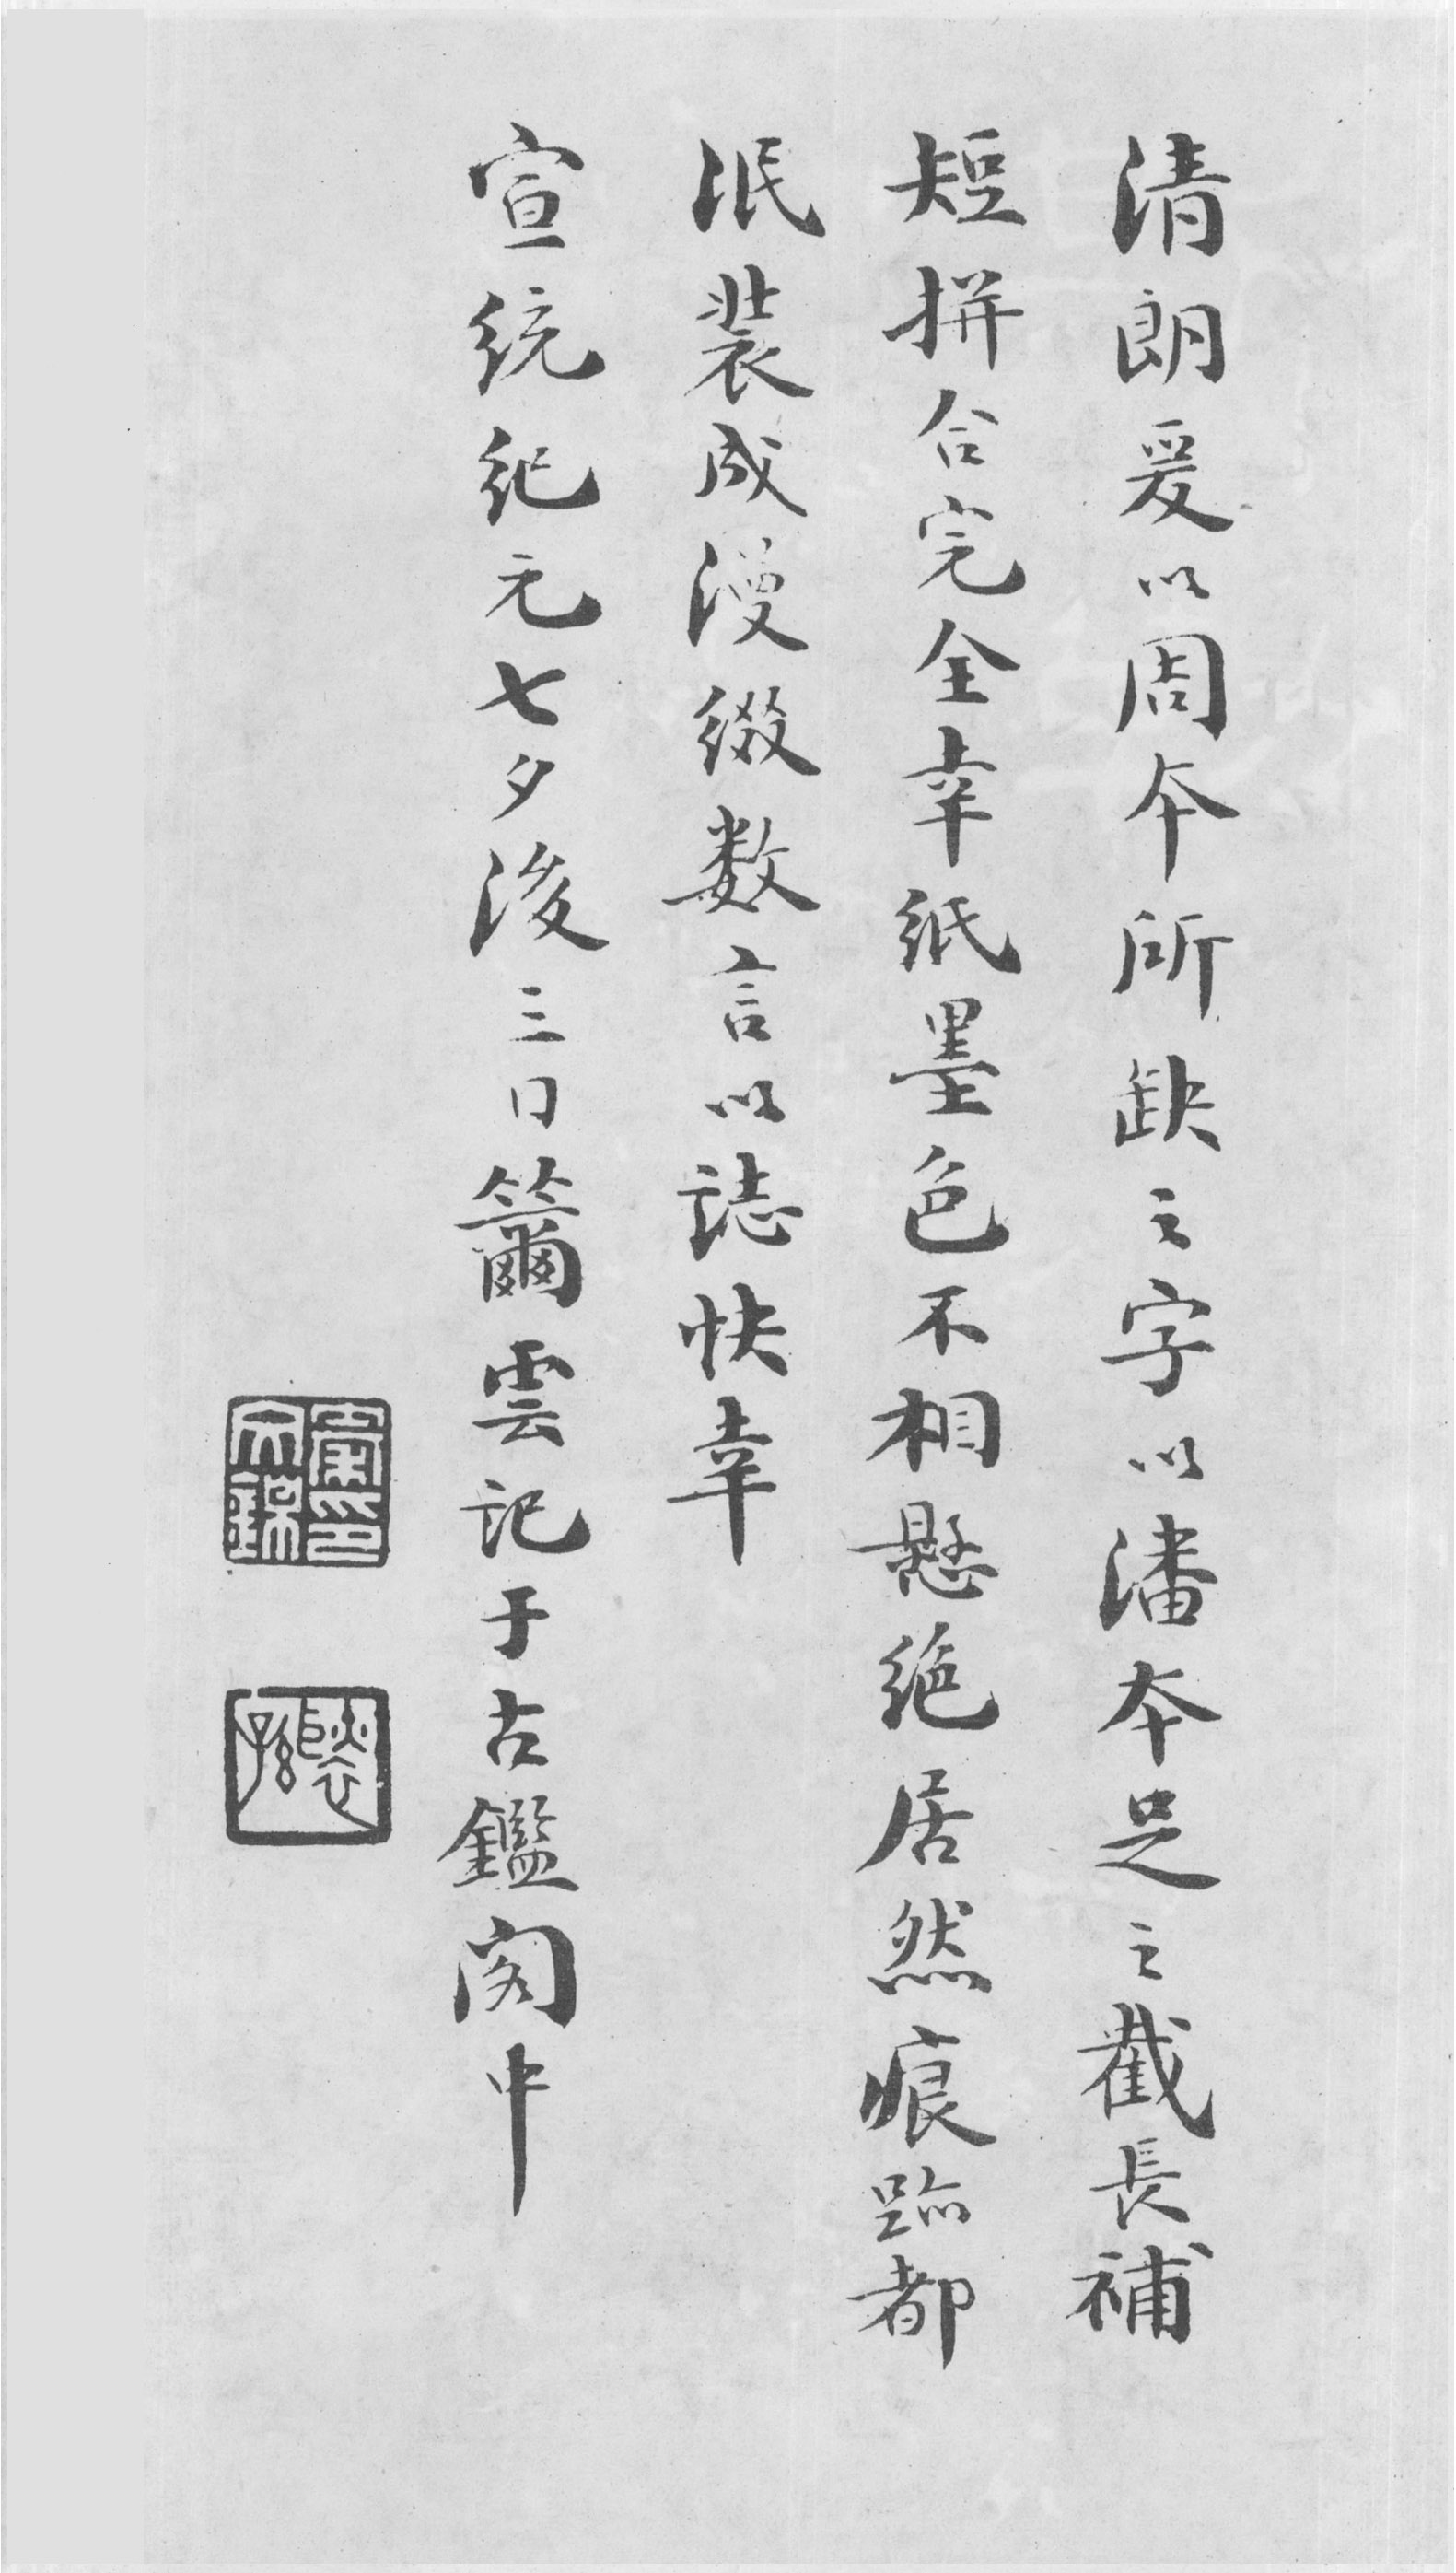 清朗爰以周本所缺之字以潘本足之截長補
短拼合完全幸紙墨色不相懸絶居然痕跡都
泯裝成漫綴數言以誌快幸
宣統紀元七夕後三日籋雲記于古鑑閣中